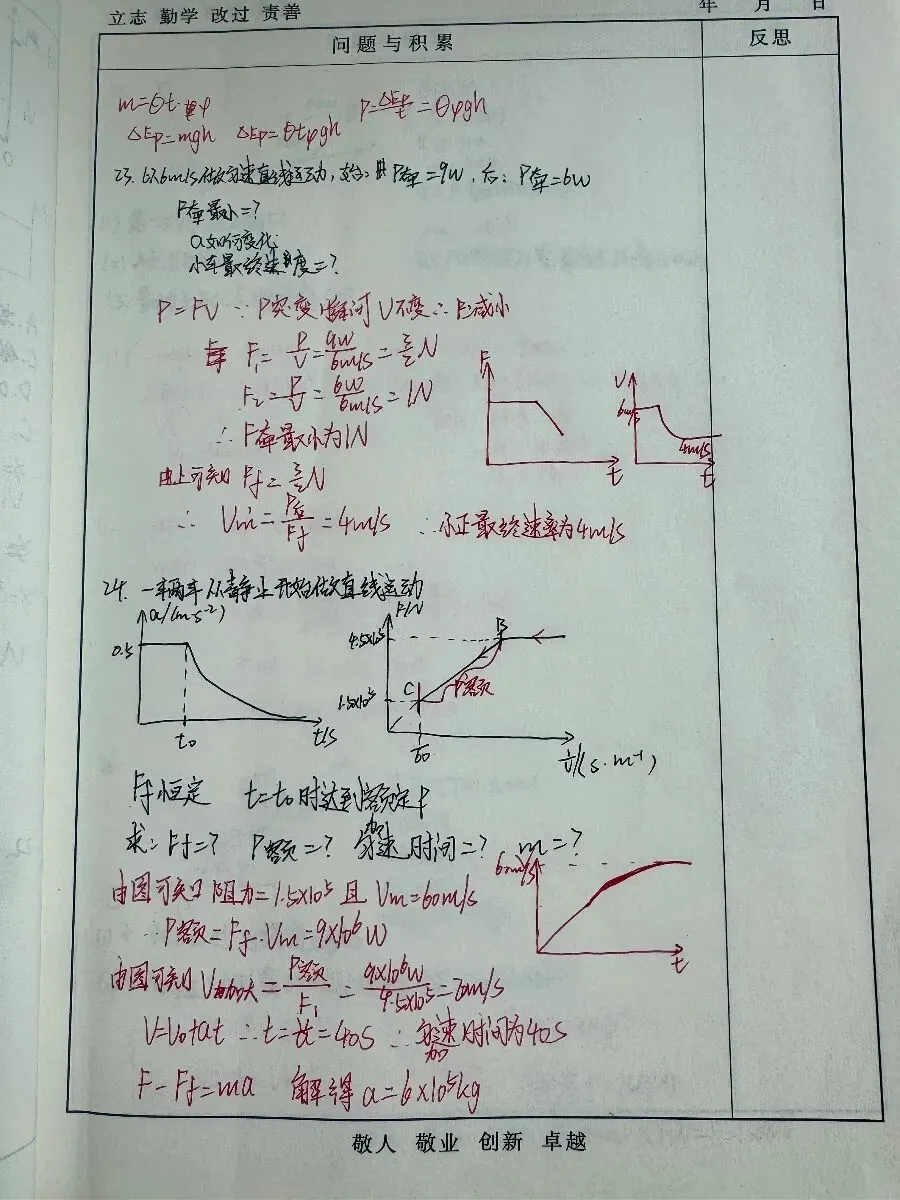 立志 勤学 改过 责善
年 月 日
问题与积累
反思
m=Qt·ρ P=ΔEp/t=Qρgh
ΔEp=mgh ΔEp=Qtρgh
23. 以6m/s做匀速直线运动, 始: P牵=9W, 后: P牵=6W
F牵最小=?
a如何变化
小车最终速度=?
P=FV ∵P突变瞬间V不变∴F减小
F₁=P/V=9W/6m/s=3/2N
F₂=P/V=6W/6m/s=1N
∴F牵最小为1N
F
t
V
6m/s
4m/s
t
由上可知 Ff=3/2N
∴ Vm=P后/Ff=4m/s ∴小车最终速率为4m/s
24. 一辆车从静止开始做直线运动
a/(m·s⁻²)
0.5
t₀
t/s
F/N
4.5×10⁵
1.5×10⁵
B
C
P额
1/60
1/v/(s·m⁻¹)
Ff恒定 t=t₀时达到额定P
求: Ff=? P额=? 匀加速时间=? m=?
60m/s
t
由图可知 阻力=1.5×10⁵ 且 Vm=60m/s
∴P额=Ff·Vm=9×10⁶W
由图可知V加大=P额/F₁=9×10⁶W/4.5×10⁵=20m/s
V=V₀+at ∴t=v/a=40s ∴匀加速时间为40s
F-Ff=ma 解得 a=6×10⁵kg
敬人 敬业 创新 卓越